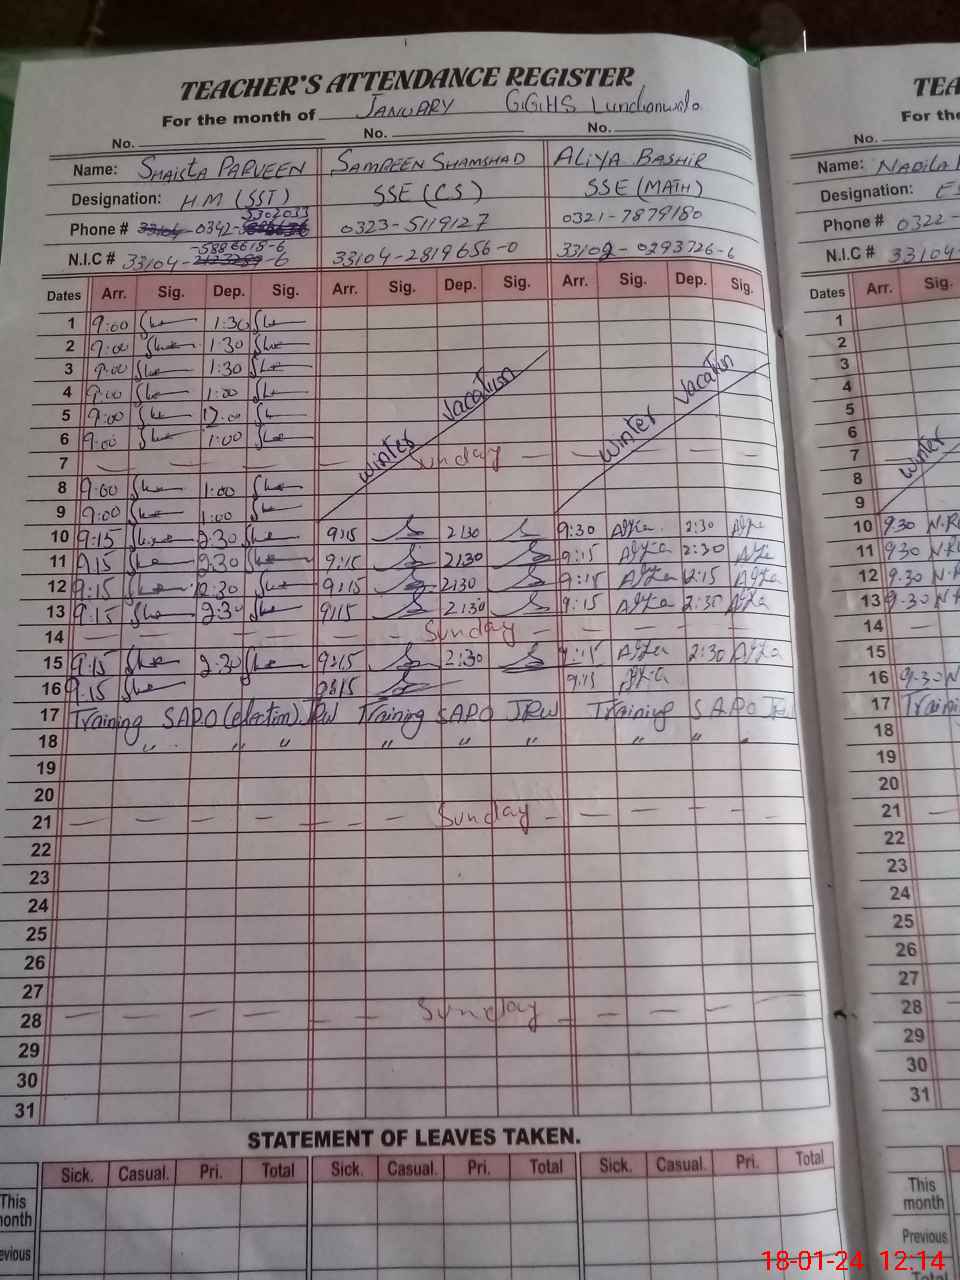 TEACHER'S ATTENDANCE REGISTER TEA
For the month of JANUARY G.G.HS Lundianwala. For the
No. No. No. No.
Name: SHAISTA PARVEEN SAMREEN SHAMSHAD ALIYA BASHIR Name: NABILA
Designation: H.M (SST) SSE (CS) SSE (MATH) Designation:
5302033
Phone # 0342- 0323-5119127 0321-7879180 Phone # 0322-
-5886615-6
N.I.C # 33104- -6 33104-2819656-0 33102-0293726-6 N.I.C # 33104-
Dates Arr. Sig. Dep. Sig. Arr. Sig. Dep. Sig. Arr. Sig. Dep. Sig. Dates Arr. Sig.
1 9:00 1:30 1
2 9:00 1:30 2
3 9:00 1:30 3
4 9:00 1:00 4
5 9:00 12:00 5
6 9:00 1:00 6
winter vacation winter vacation winter
7 — — — — — Sunday — — — — — 7
8 9:00 1:00 8
9 9:00 1:00 9
10 9:15 2:30 9:15 2:30 9:30 2:30 10 930
11 9:15 2:30 9:15 2:30 9:15 2:30 11 930
12 9:15 12:30 9:15 2:30 9:15 12:15 12 9.30
13 9:15 2:30 9:15 2:30 9:15 2:30 13 9.30
14 — — — — — — Sunday — — — — — 14 —
15 9:15 2:30 9:15 2:30 9:15 2:30 15
16 9:15 9:15 9:15 16 9.30
17 Training SAPO (election) JRW Training SAPO JRW Training SAPO JRW 17 Training
18 〃 〃 〃 〃 〃 〃 〃 〃 18
19 19
20 20
21 — — — — — — Sunday — — — — — 21 —
22 22
23 23
24 24
25 25
26 26
27 27
28 — — — — — — Sunday — — — — — 28 —
29 29
30 30
31 31
STATEMENT OF LEAVES TAKEN.
Sick. Casual. Pri. Total Sick. Casual. Pri. Total Sick. Casual. Pri. Total
This month This month
Previous
18-01-24 12:14